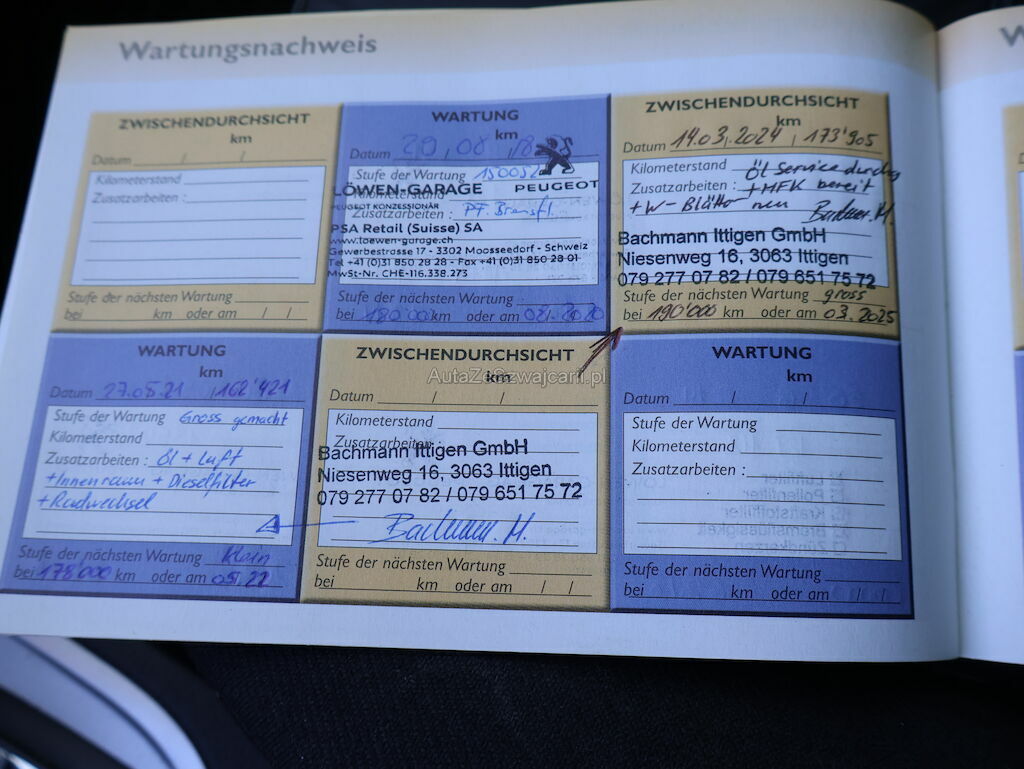 Wartungsnachweis
W
ZWISCHENDURCHSICHT
km
Datum / /
Kilometerstand
Zusatzarbeiten :
Stufe der nächsten Wartung
bei km oder am / /
WARTUNG
km
Datum 20,08,18
Stufe der Wartung 150052
Kilometerstand
LÖWEN-GARAGE PEUGEOT
PEUGEOT KONZESSIONÄR
Zusatzarbeiten : PF. Bremsfl.
PSA Retail (Suisse) SA
www.loewen-garage.ch
Gewerbestrasse 17 - 3302 Moosseedorf - Schweiz
Tel +41 (0)31 850 28 28 - Fax +41 (0)31 850 28 01
MwSt-Nr. CHE-116.338.273
Stufe der nächsten Wartung
bei 180'000 km oder am 02.2020
ZWISCHENDURCHSICHT
km
Datum 14.03.2024, 173'905
Kilometerstand Öl Service durchg
Zusatzarbeiten : + MFK bereit
+ W-Blätter neu Bachmann. M.
Bachmann Ittigen GmbH
Niesenweg 16, 3063 Ittigen
079 277 07 82 / 079 651 75 72
Stufe der nächsten Wartung gross
bei 190'000 km oder am 03.2025
WARTUNG
km
Datum 27.05.21, 162'421
Stufe der Wartung Gross gemacht
Kilometerstand
Zusatzarbeiten : Öl + Luft
+ Innenraum + Dieselfilter
+ Radwechsel
Stufe der nächsten Wartung Klein
bei 178'000 km oder am 05.22
ZWISCHENDURCHSICHT
km
AutaZeSzwajcarii.pl
Datum / /
Kilometerstand
Zusatzarbeiten :
Bachmann Ittigen GmbH
Niesenweg 16, 3063 Ittigen
079 277 07 82 / 079 651 75 72
Bachmann. M.
Stufe der nächsten Wartung
bei km oder am / /
WARTUNG
km
Datum / /
Stufe der Wartung
Kilometerstand
Zusatzarbeiten :
Stufe der nächsten Wartung
bei km oder am / /